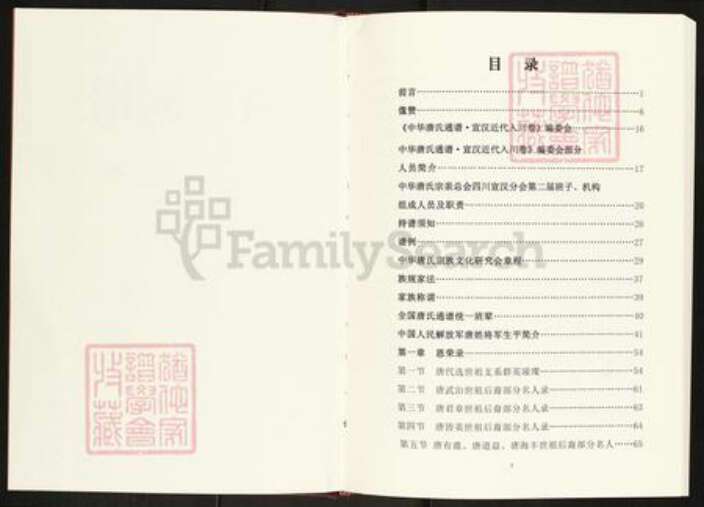 目 录
前言……1
像赞……6
《中华唐氏通谱·宣汉近代入川卷》编委会……16
中华唐氏通谱·宣汉近代入川卷》编委会部分
人员简介……17
中华唐氏宗亲总会四川宣汉分会第二届班子、机构
组成人员及职责……20
持谱须知……26
谱例……27
中华唐氏宗族文化研究会章程……29
族规家法……37
家族称谓……39
全国唐氏通谱统一班辈……40
中国人民解放军唐姓将军生平简介……41
第一章 恩荣录……54
第一节 唐代选世祖支系群英璀璨……54
第二节 唐武治世祖后裔部分名人录……61
第三节 唐君章世祖后裔部分名人录……63
第四节 唐 世祖后裔部分名人录……64
第五节 唐有 、唐道 、唐海丰世祖后裔部分名人……65
1
FamilySearch
谱学会
特藏
谱学会
特藏